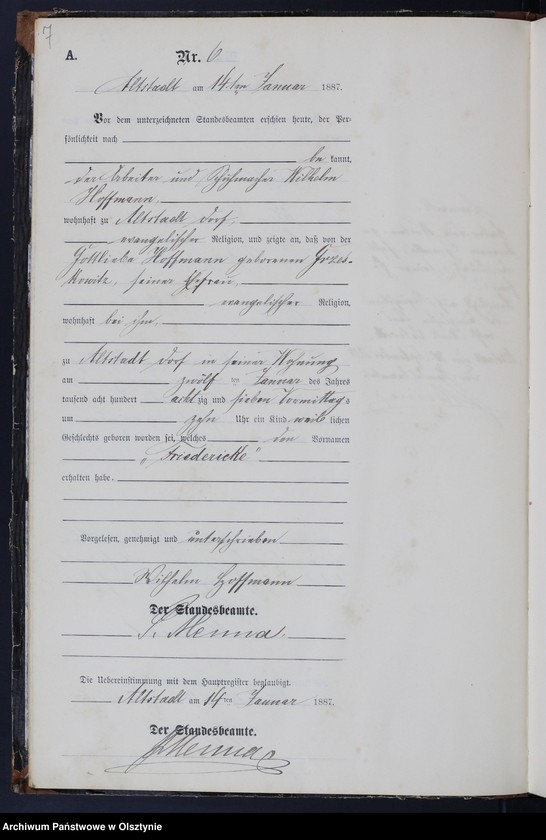 7
A. Nr. 6
Altstadt am 14ten Januar 1887.
Vor dem unterzeichneten Standesbeamten erschien heute, der Per-
sönlichkeit nach
be kannt,
der Arbeiter und Schuhmacher Wilhelm
Hoffmann,
wohnhaft zu Altstadt Dorf,
evangelischer Religion, und zeigte an, daß von der
Gottliebe Hoffmann geborenen Grzes-
kowitz, seiner Ehefrau,
evangelischer Religion,
wohnhaft bei ihm,
zu Altstadt Dorf in seiner Wohnung
am zwölf ten Januar des Jahres
tausend acht hundert acht zig und sieben Vormittags
um zehn Uhr ein Kind weib lichen
Geschlechts geboren worden sei, welches den Vornamen
„Friedericke"
erhalten habe.
Vorgelesen, genehmigt und unterschrieben
Wilhelm Hoffmann
Der Standesbeamte.
Menna.
Die Uebereinstimmung mit dem Hauptregister beglaubigt.
Altstadt am 14ten Januar 1887.
Der Standesbeamte.
Menna
Archiwum Państwowe w Olsztynie